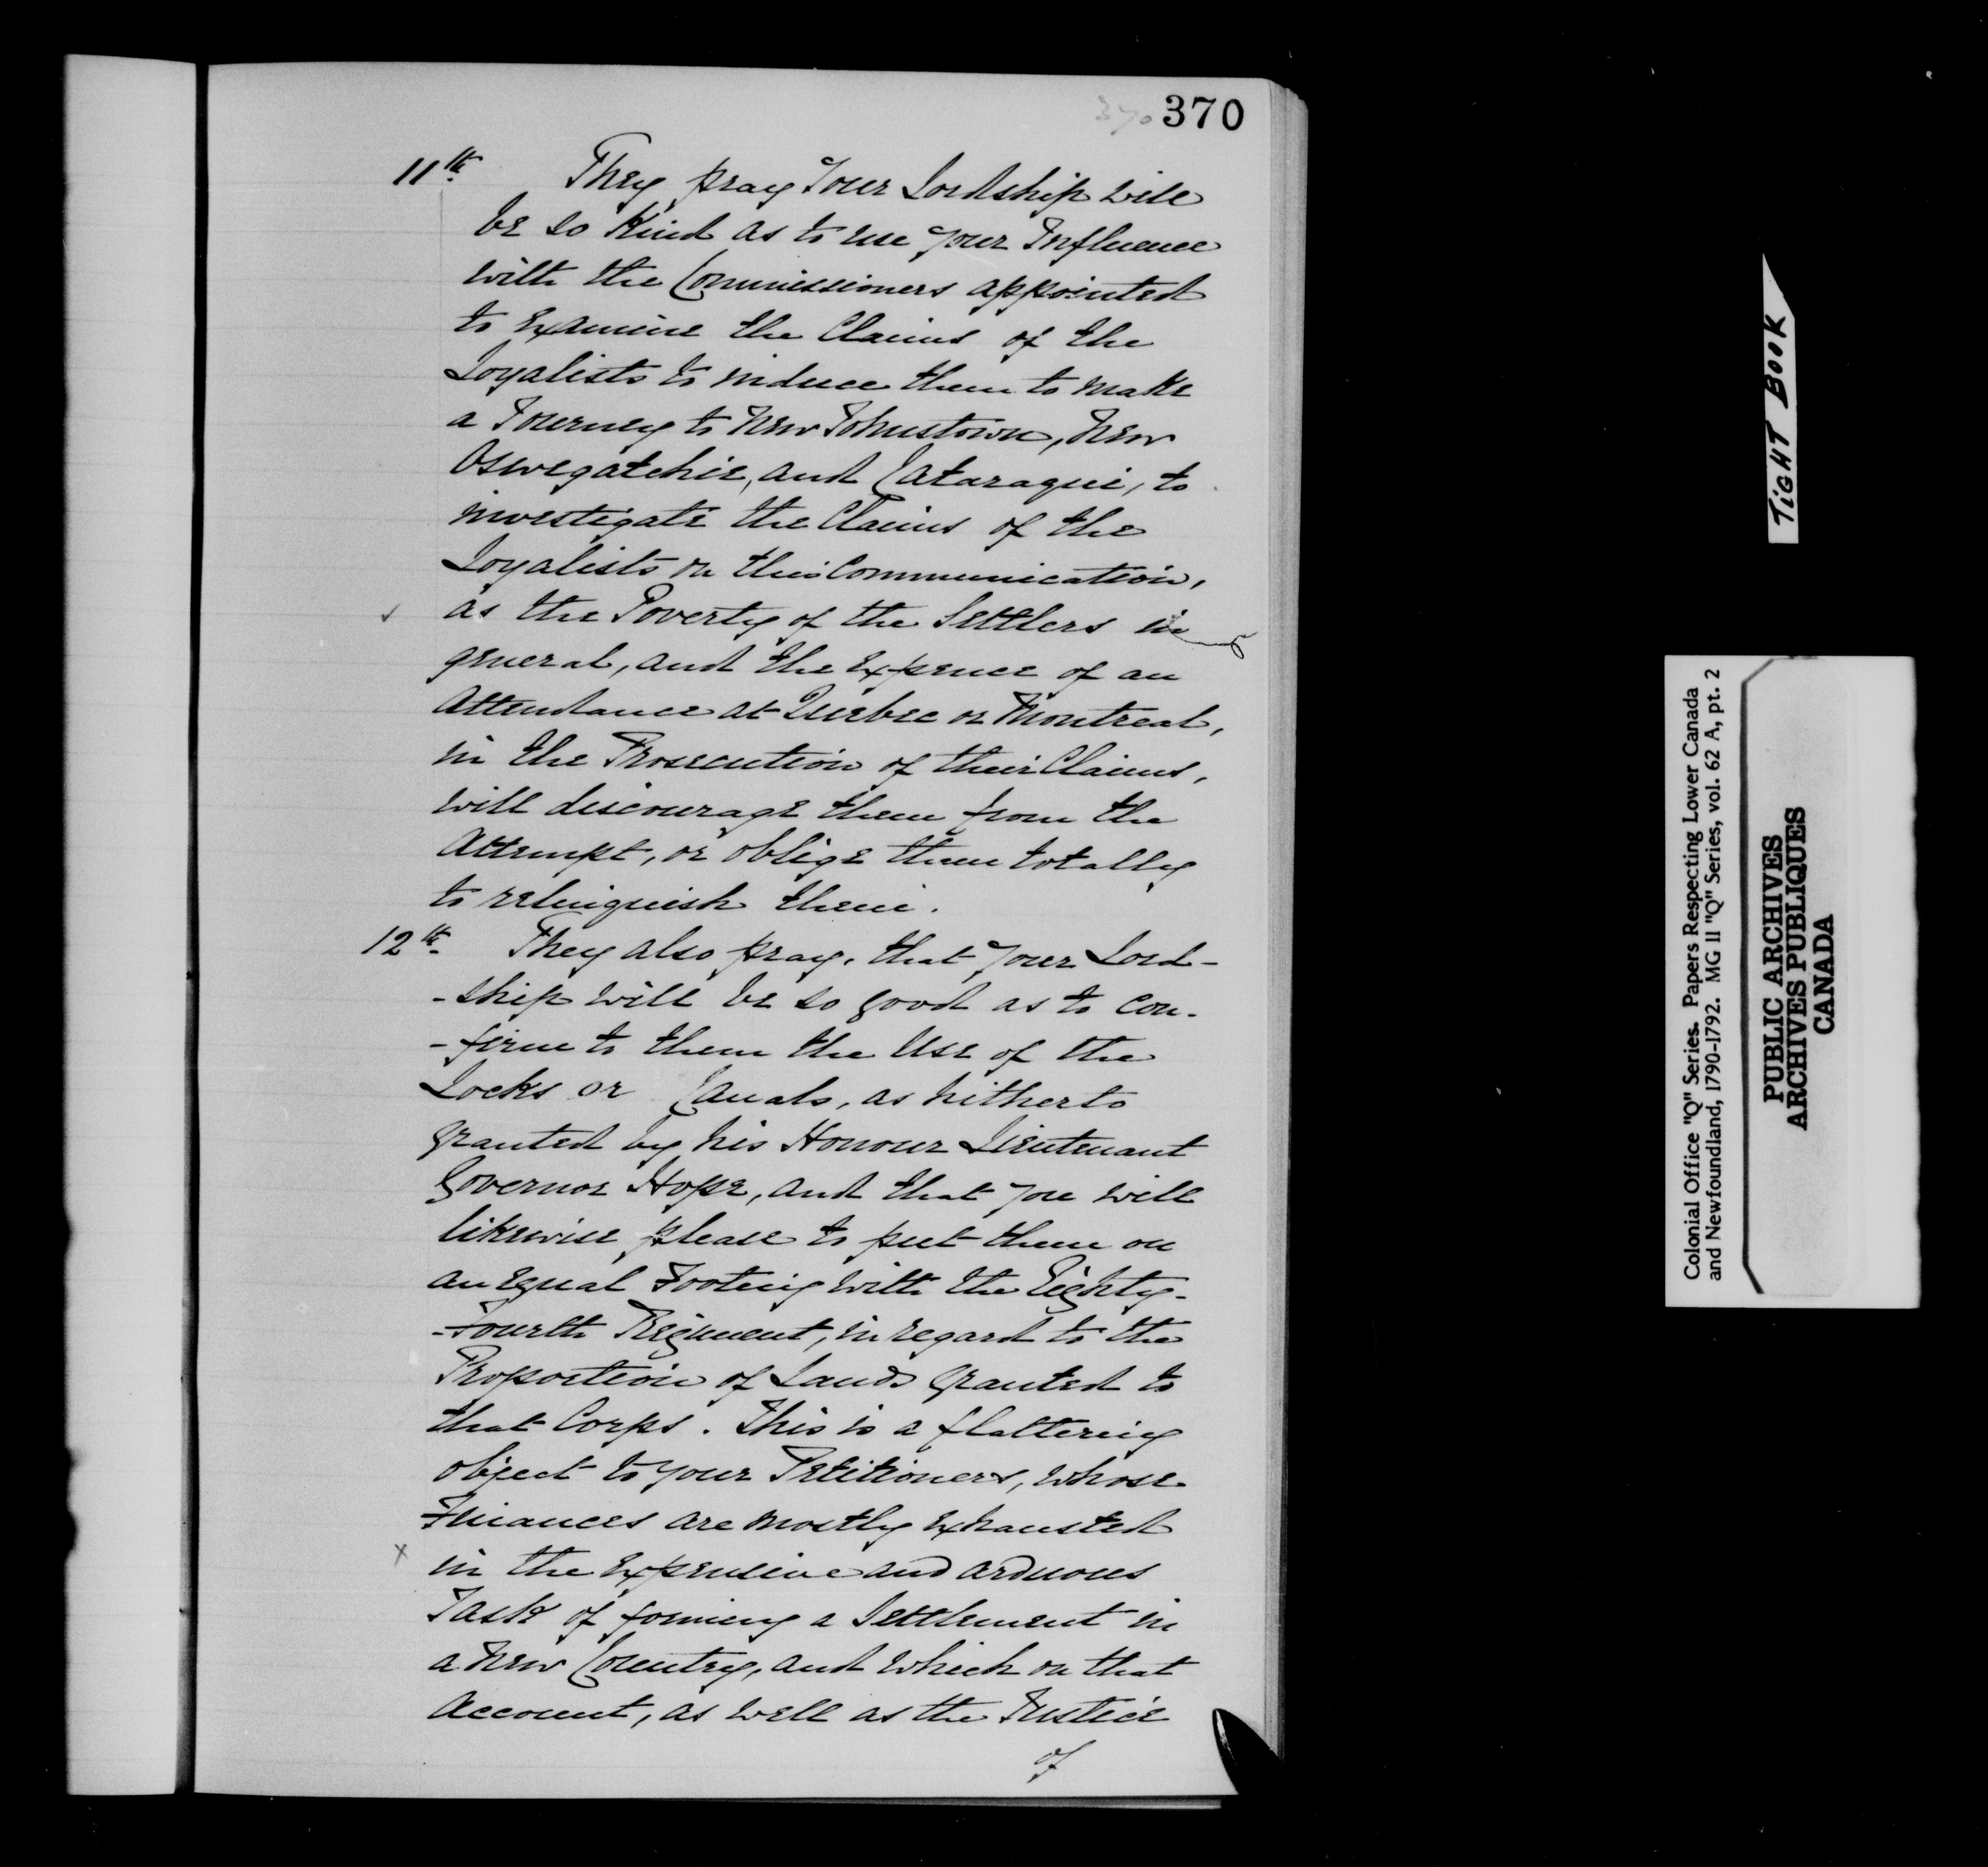 370 370
11th. They pray Your Lordship will
be so Kind as to use your Influence
with the Commissioners appointed
to Examine the Claims of the
Loyalists to induce them to make
a Journey to New Johnstown, New
Oswegatchie, and Cataraqui, to
investigate the Claims of the
Loyalists on this Communication,
as the Poverty of the Settlers in
general, and the Expence of an
Attendance at Quebec or Montreal,
in the Prosecution of their Claims,
will discourage them from the
Attempt, or oblige them totally
to relinquish them.
12th. They also pray, that your Lord-
-ship will be so good as to con-
-firm to them the Use of the
Locks or Canals, as hitherto
granted by his Honour Lieutenant
Governor Hope, and that you will
likewise please to put them on
an Equal Footing with the Eighty-
-Fourth Regiment, in regard to the
Proportion of Lands Granted to
that Corps. This is a flattering
object to your Petitioners, whose
Finances are mostly Exhausted
x in the Expensive and arduous
Task of forming a Settlement in
a New Country, and which on that
Account, as well as the Justice
of
TIGHT BOOK
Colonial Office "Q" Series. Papers Respecting Lower Canada
and Newfoundland, 1790-1792. MG 11 "Q" Series, vol. 62 A, pt. 2
PUBLIC ARCHIVES
ARCHIVES PUBLIQUES
CANADA